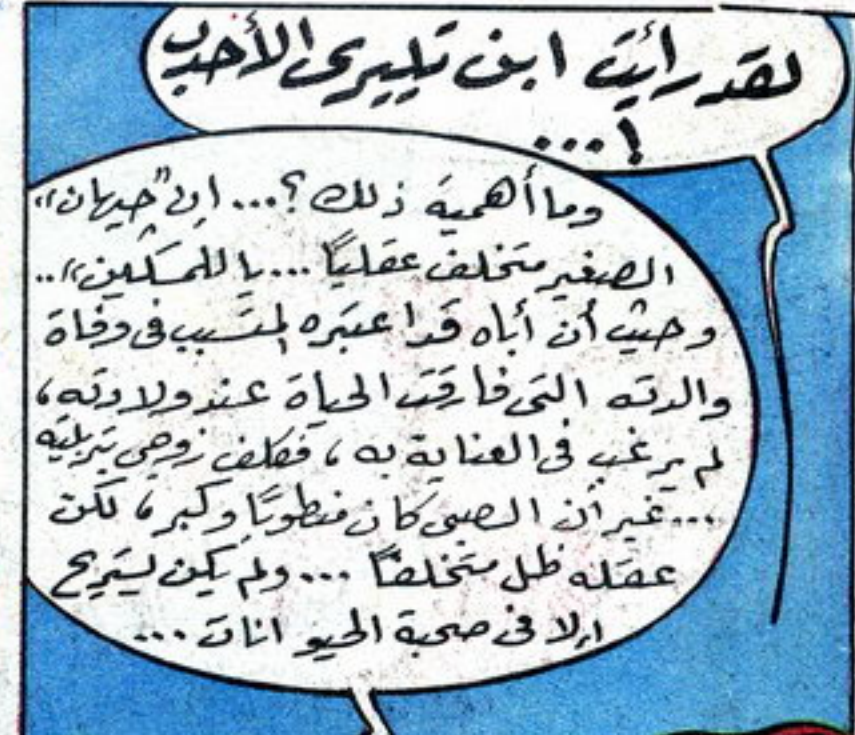 لقد رأيت ابن تيبيري الأحدب
!...
وما أهمية ذلك ؟... إن "جيهان"
الصغير متخلف عقلياً... يا للمسكين"..
وحيث أن أباه قد اعتبره المتسبب فى وفاة
والدته التى فارقت الحياة عند ولادته،
لم يرغب فى العناية به، فكلف زوجى بتربيته
...غير أن الصبى كان منطوياً وكبر، لكن
عقله ظل متخلفاً ... ولم يكن يستريح
إلا فى صحبة الحيوانات ...